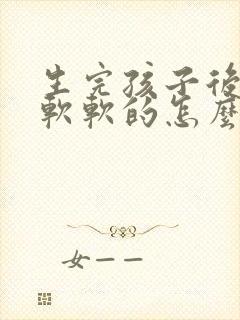 生完孩子後
軟軟的怎麼
女——